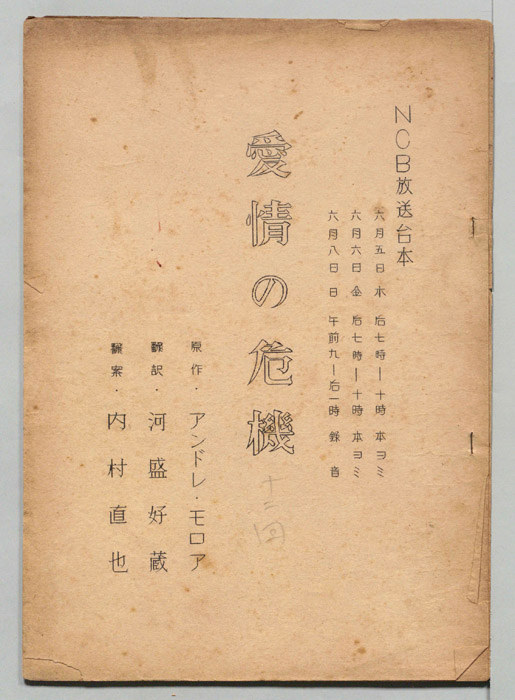 NCB放送台本
六月五日 木 后七時—十時 本ヨミ
六月六日 金 后七時—十時 本ヨミ
六月八日 日 午前九—后一時 録音
愛情の危機
十二回
原作・アンドレ・モロア
飜訳・河盛好蔵
飜案・内村直也